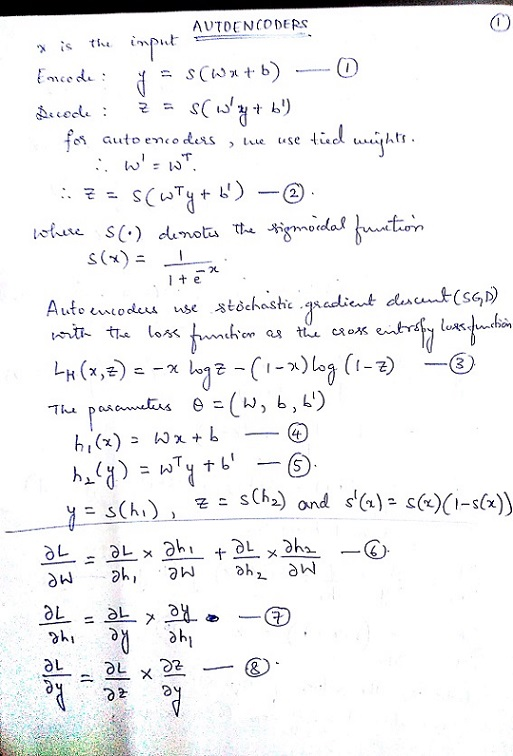 AUTOENCODERS ①
x is the input
Encode : y = s(Wx + b) — ①
Decode : z = s(W'y + b')
for autoencoders, we use tied weights.
∴ W' = Wᵀ.
∴ z = s(Wᵀy + b') — ②.
where s(·) denotes the sigmoidal function
s(x) = 1 / (1 + e⁻ˣ)
Autoencoders use stochastic gradient descent (SGD)
with the loss function as the cross entropy loss function
L_H(x,z) = -x log z - (1-x) log (1-z) — ③.
The parameters θ = (W, b, b')
h₁(x) = Wx + b — ④
h₂(y) = Wᵀy + b' — ⑤.
y = s(h₁), z = s(h₂) and s'(x) = s(x)(1-s(x))
∂L/∂W = ∂L/∂h₁ × ∂h₁/∂W + ∂L/∂h₂ × ∂h₂/∂W — ⑥.
∂L/∂h₁ = ∂L/∂y × ∂y/∂h₁ — ⑦
∂L/∂y = ∂L/∂z × ∂z/∂y — ⑧.